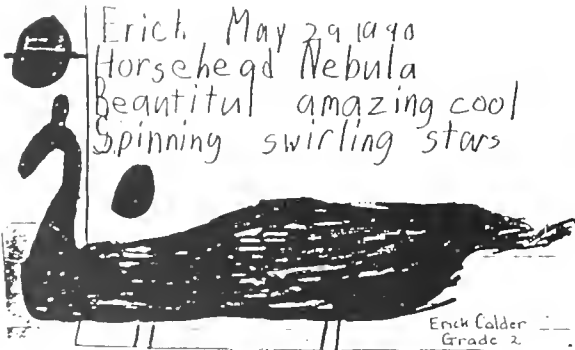 Erich May 29 1990
Horsehead Nebula
Beautiful amazing cool
Spinning swirling stars
Erick Calder
Grade 2